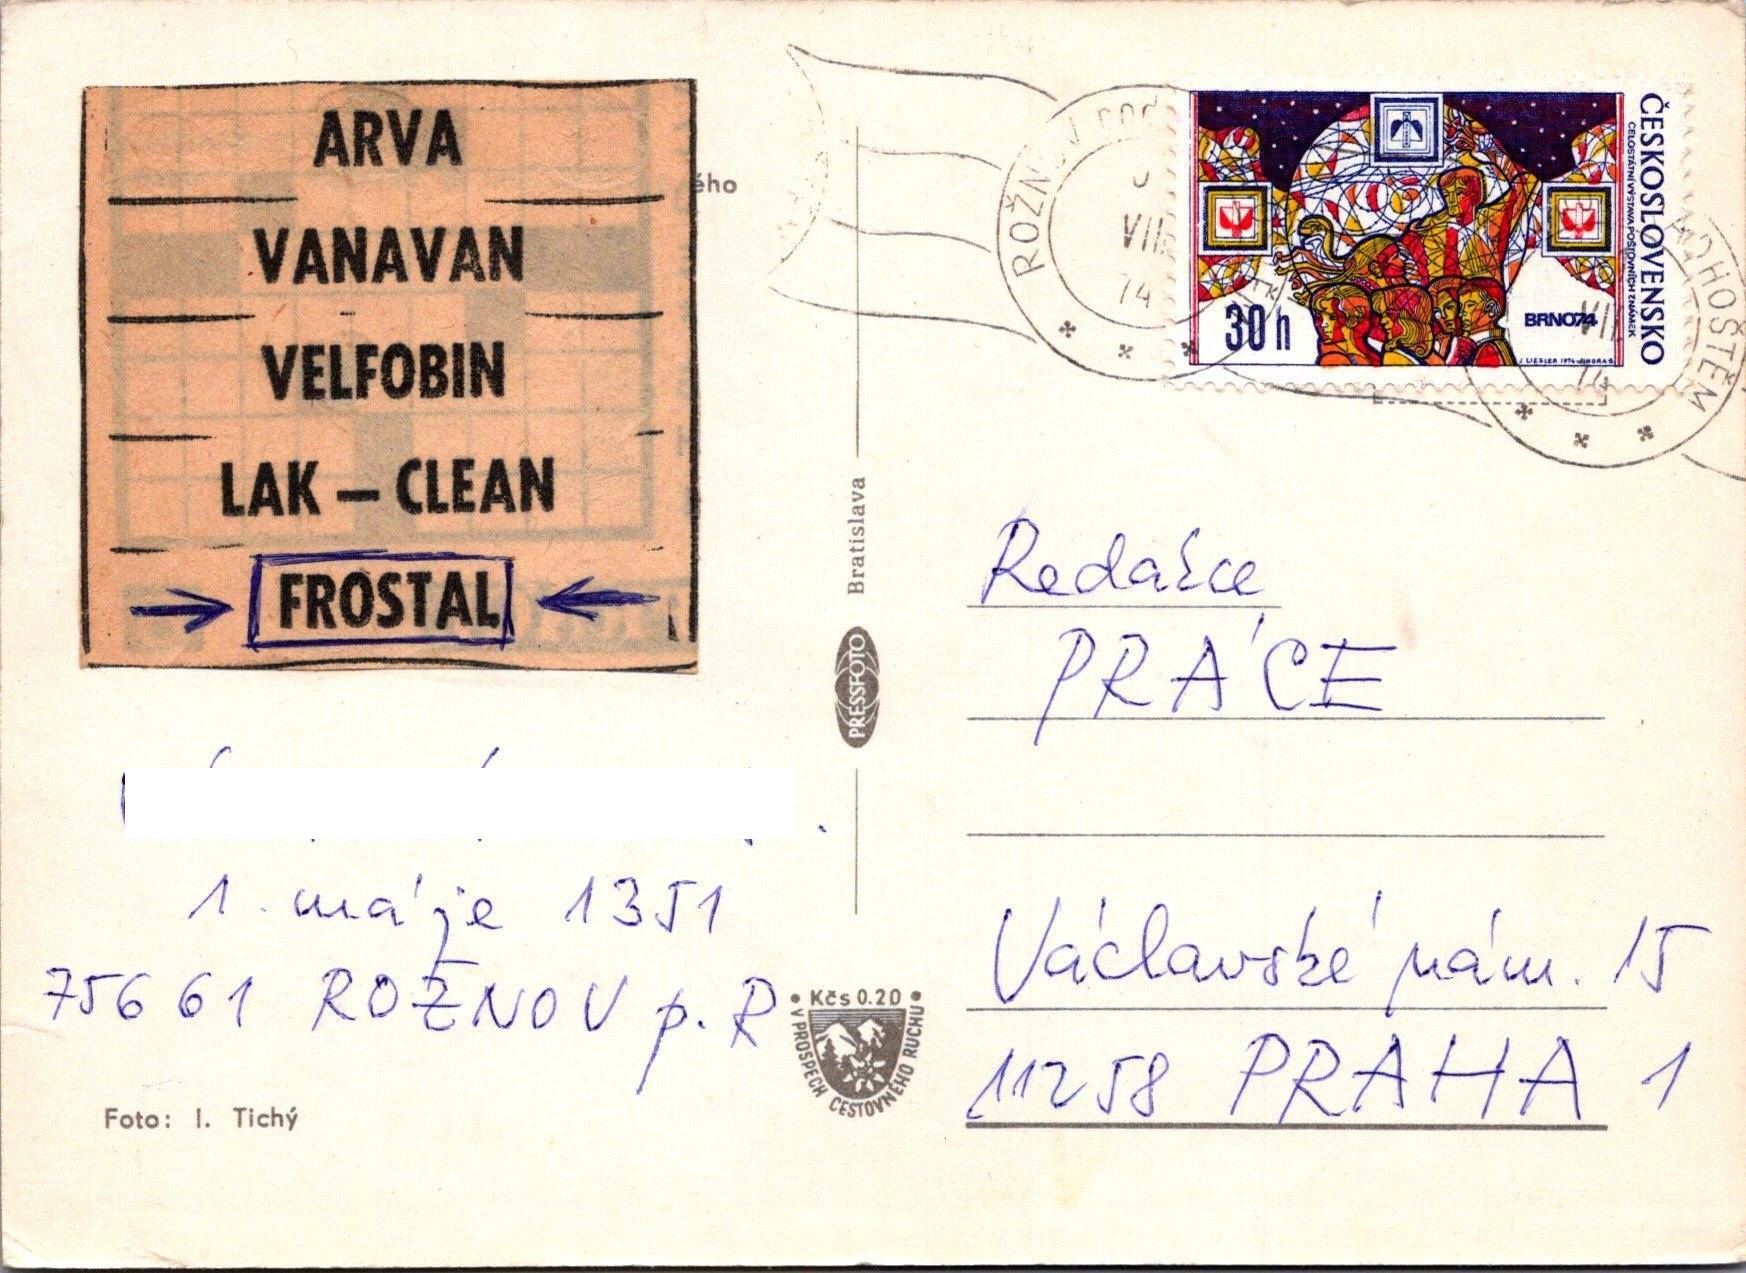 ARVA
VANAVAN
VELFOBIN
LAK – CLEAN
FROSTAL
ého
1. máje 1351
75661 ROŽNOV p. R
Foto: I. Tichý
Bratislava
PRESSFOTO
Kčs 0.20
V PROSPECH CESTOVNÉHO RUCHU
ROŽNOV POD
VII
74
RADHOŠTĚM
VII
74
ČESKOSLOVENSKO
CELOSTÁTNÍ VÝSTAVA POŠTOVNÍCH ZNÁMEK
30 h
BRNO74
J. LIESLER 1974
Redakce
PRÁCE
Václavské nám. 15
11258 PRAHA 1